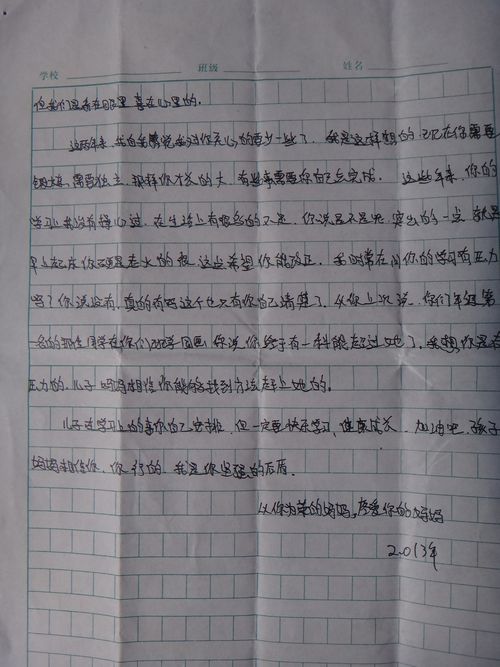 学校 班级 姓名
但我们是看在眼里 喜在心里的。
这两年来，我自我感觉我对你关心的要少一些了，我是这样想的，现在你需要
锻炼，需要独立，那样你才长的大，有些事需要你自己去完成。 这些年来，你的
学习上我没有操心过，在生活上有很多的不足，你说是不是呢，突出的一点就是
早上起床你还是老火的很，这点希望你能改正。我时常在问你的学习有压力
吗？你说没有，真的有吗这个也只有你自己清楚了，从你上次说，你们年级第
一名的那位同学在你们班，你说你终于有一科能超过她了，我想你是有
压力的，儿子 妈妈相信你能够找到方法赶上她的。
儿子在学习上的事你自己安排，但一定要快乐学习，健康成长，加油吧，孩子
妈妈相信你，你行的，我是你坚强的后盾。
以你为荣的妈妈，疼爱你的妈妈
2013年